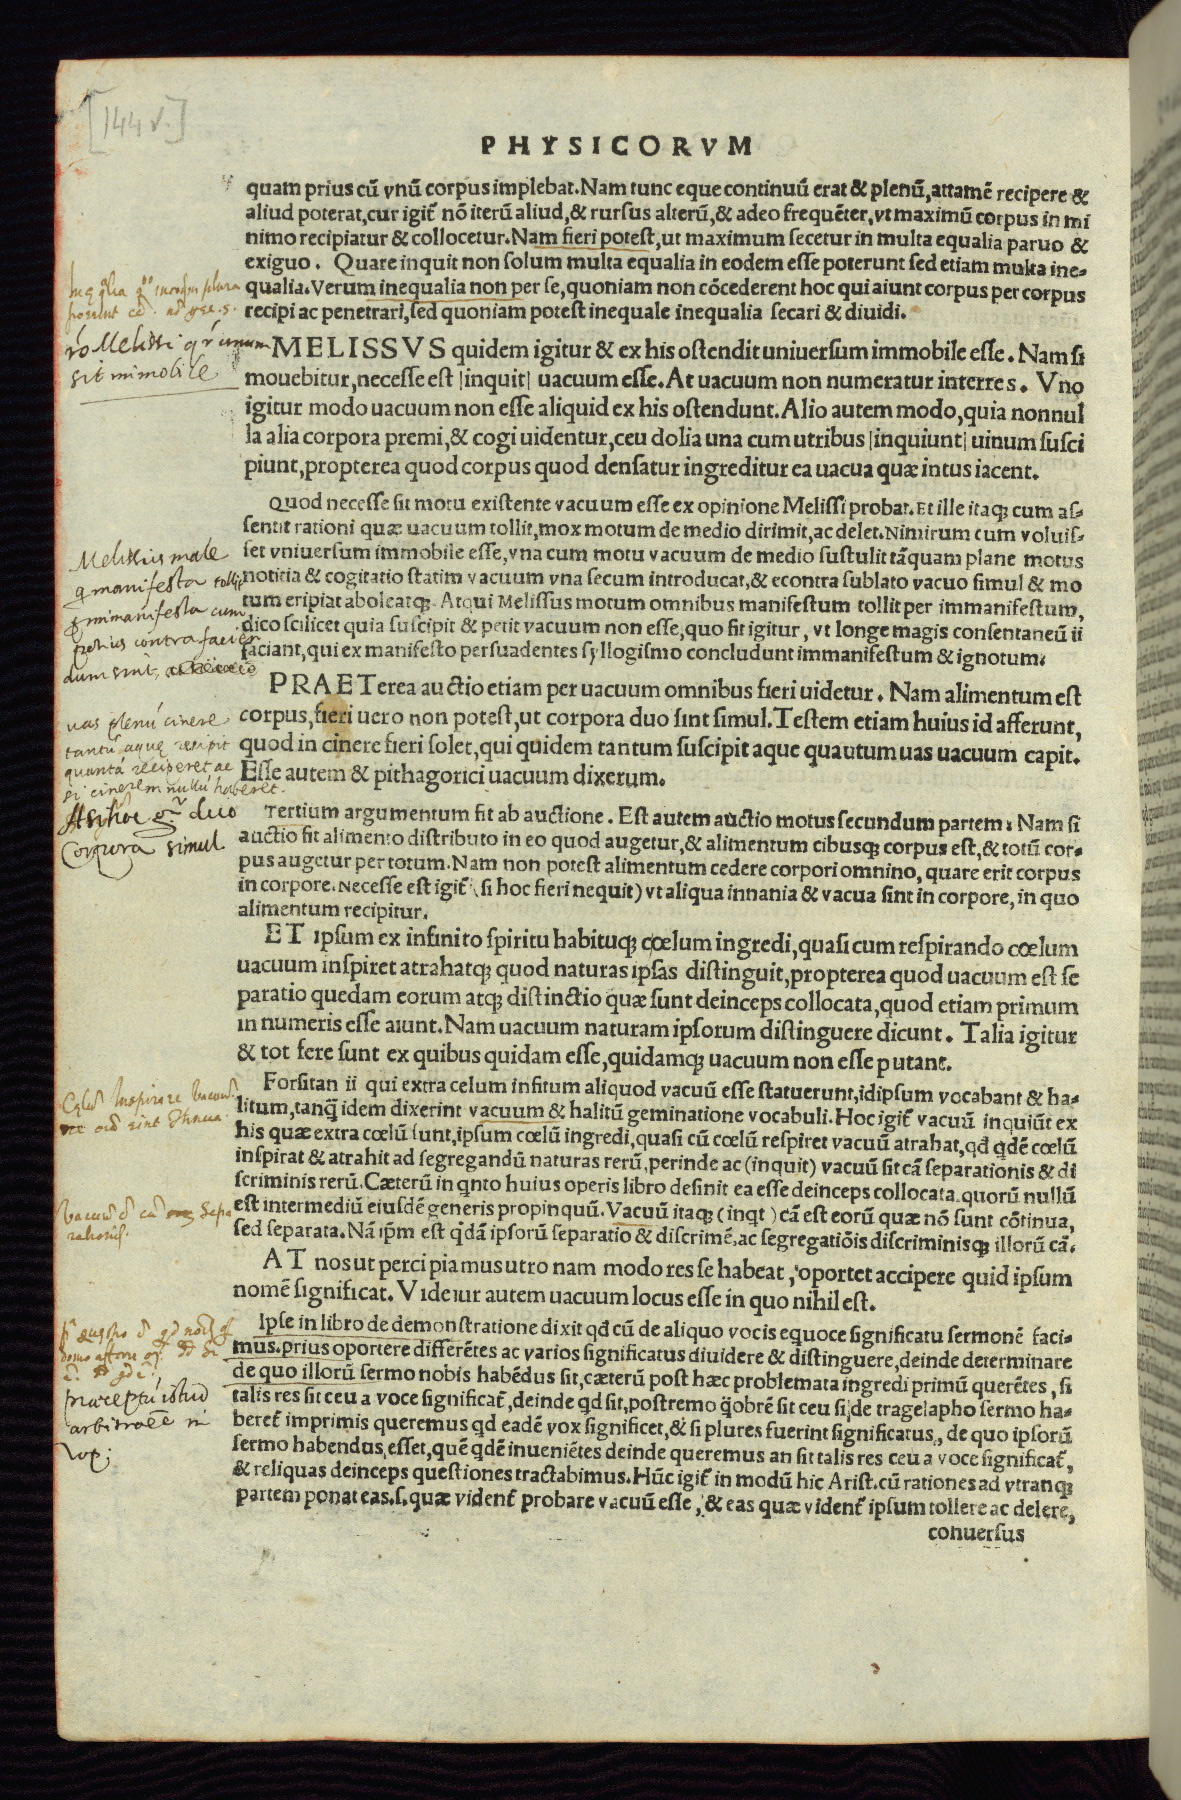 [144 v.]
PHYSICORVM
quam prius cū vnū corpus implebat. Nam tunc eque continuū erat & plenū, attamē recipere &
aliud poterat, cur igit̄ nō iterū aliud, & rursus alterū, & adeo frequēter, vt maximū corpus in mi
nimo recipiatur & collocetur. Nam fieri potest, ut maximum secetur in multa equalia paruo &
exiguo. Quare inquit non solum multa equalia in eodem esse poterunt sed etiam multa ine-
qualia. Verum inequalia non per se, quoniam non cōcederent hoc qui aiunt corpus per corpus
recipi ac penetrari, sed quoniam potest inequale inequalia secari & diuidi.
rō Melissi qr unum
sit immobile
MELISSVS quidem igitur & ex his ostendit uniuersum immobile esse. Nam si
mouebitur, necesse est |inquit| uacuum esse. At uacuum non numeratur interres. Vno
igitur modo uacuum non esse aliquid ex his ostendunt. Alio autem modo, quia nonnul
la alia corpora premi, & cogi uidentur, ceu dolia una cum utribus |inquiunt| uinum susci
piunt, propterea quod corpus quod densatur ingreditur ea uacua quæ intus iacent.
Quod necesse sit motu existente vacuum esse ex opinione Melissi probat. Et ille itaq; cum as-
sentit rationi quæ uacuum tollit, mox motum de medio dirimit, ac delet. Nimirum cum voluis-
set vniuersum immobile esse, vna cum motu vacuum de medio sustulit tāquam plane motus
notitia & cogitatio statim vacuum vna secum introducat, & econtra sublato vacuo simul & mo
tum eripiat aboleatq;. Atqui Melissus motum omnibus manifestum tollit per immanifestum,
dico scilicet quia suscipit & petit vacuum non esse, quo fit igitur, vt longe magis consentaneū ii
faciant, qui ex manifesto persuadentes syllogismo concludunt immanifestum & ignotum.
Melissus male
manifesta tollit
immanifesta cum
potius contra facien
dum sint,
PRAETerea auctio etiam per uacuum omnibus fieri uidetur. Nam alimentum est
corpus, fieri uero non potest, ut corpora duo sint simul. Testem etiam huius id afferunt,
quod in cinere fieri solet, qui quidem tantum suscipit aque quautum uas uacuum capit.
Esse autem & pithagorici uacuum dixerum.
uas plenū cinere
tantū aque recipit
quantā reciperet ac
si cinerem nullū haberet.
duo
Corpora simul
Tertium argumentum fit ab auctione. Est autem auctio motus secundum partem: Nam si
auctio fit alimento distributo in eo quod augetur, & alimentum cibusq; corpus est, & totū cor-
pus augetur per totum. Nam non potest alimentum cedere corpori omnino, quare erit corpus
in corpore. Necesse est igit̄ (si hoc fieri nequit) vt aliqua innania & vacua sint in corpore, in quo
alimentum recipitur.
ET ipsum ex infinito spiritu habituq; cœlum ingredi, quasi cum respirando cœlum
uacuum inspiret atrahatq; quod naturas ipsas distinguit, propterea quod uacuum est se
paratio quedam eorum atq; distinctio quæ sunt deinceps collocata, quod etiam primum
in numeris esse aiunt. Nam uacuum naturam ipsorum distinguere dicunt. Talia igitur
& tot fere sunt ex quibus quidam esse, quidamq; uacuum non esse putant.
Forsitan ii qui extra celum infitum aliquod vacuū esse statuerunt, idipsum vocabant & ha-
litum, tanq̄ idem dixerint vacuum & halitū geminatione vocabuli. Hoc igit̄ vacuū inquiūt ex
his quæ extra cœlū sunt, ipsum cœlū ingredi, quasi cū cœlū respiret vacuū atrahat, qd̄ qdē cœlū
inspirat & atrahit ad segregandū naturas rerū, perinde ac (inquit) vacuū sit cā separationis & di
scriminis rerū. Cæterū in qnto huius operis libro desinit ea esse deinceps collocata. quorū nullū
est intermediū eiusdē generis propinquū. Vacuū itaq; (inqt) cā est eorū quæ nō sunt cōtinua,
sed separata. Nā ipm̄ est qdā ipsorū separatio & discrimē, ac segregatiōis discriminisq; illorū cā.
AT nos ut percipiamus utro nam modo res se habeat, oportet accipere quid ipsum
nomē significat. Videtur autem uacuum locus esse in quo nihil est.
Ipse in libro de demonstratione dixit qd̄ cū de aliquo vocis equoce significatu sermonē faci-
mus. prius oportere differētes ac varios significatus diuidere & distinguere, deinde determinare
de quo illorū sermo nobis habēdus sit, cæterū post hæc problemata ingredi primū querētes, si
talis res sit ceu a voce significat̄, deinde qd sit, postremo q̄obrē sit ceu si de tragelapho sermo ha-
beret̄ imprimis queremus qd eadē vox significet, & si plures fuerint significatus, de quo ipsorū
sermo habendus esset, quē qdē inueniētes deinde queremus an sit talis res ceu a voce significat̄,
& reliquas deinceps questiones tractabimus. Hūc igit̄ in modū hic Arist. cū rationes ad vtranq;
partem ponat eas. s. quæ vident̄ probare vacuū esse, & eas quæ vident̄ ipsum tollere ac delere,
conuersus